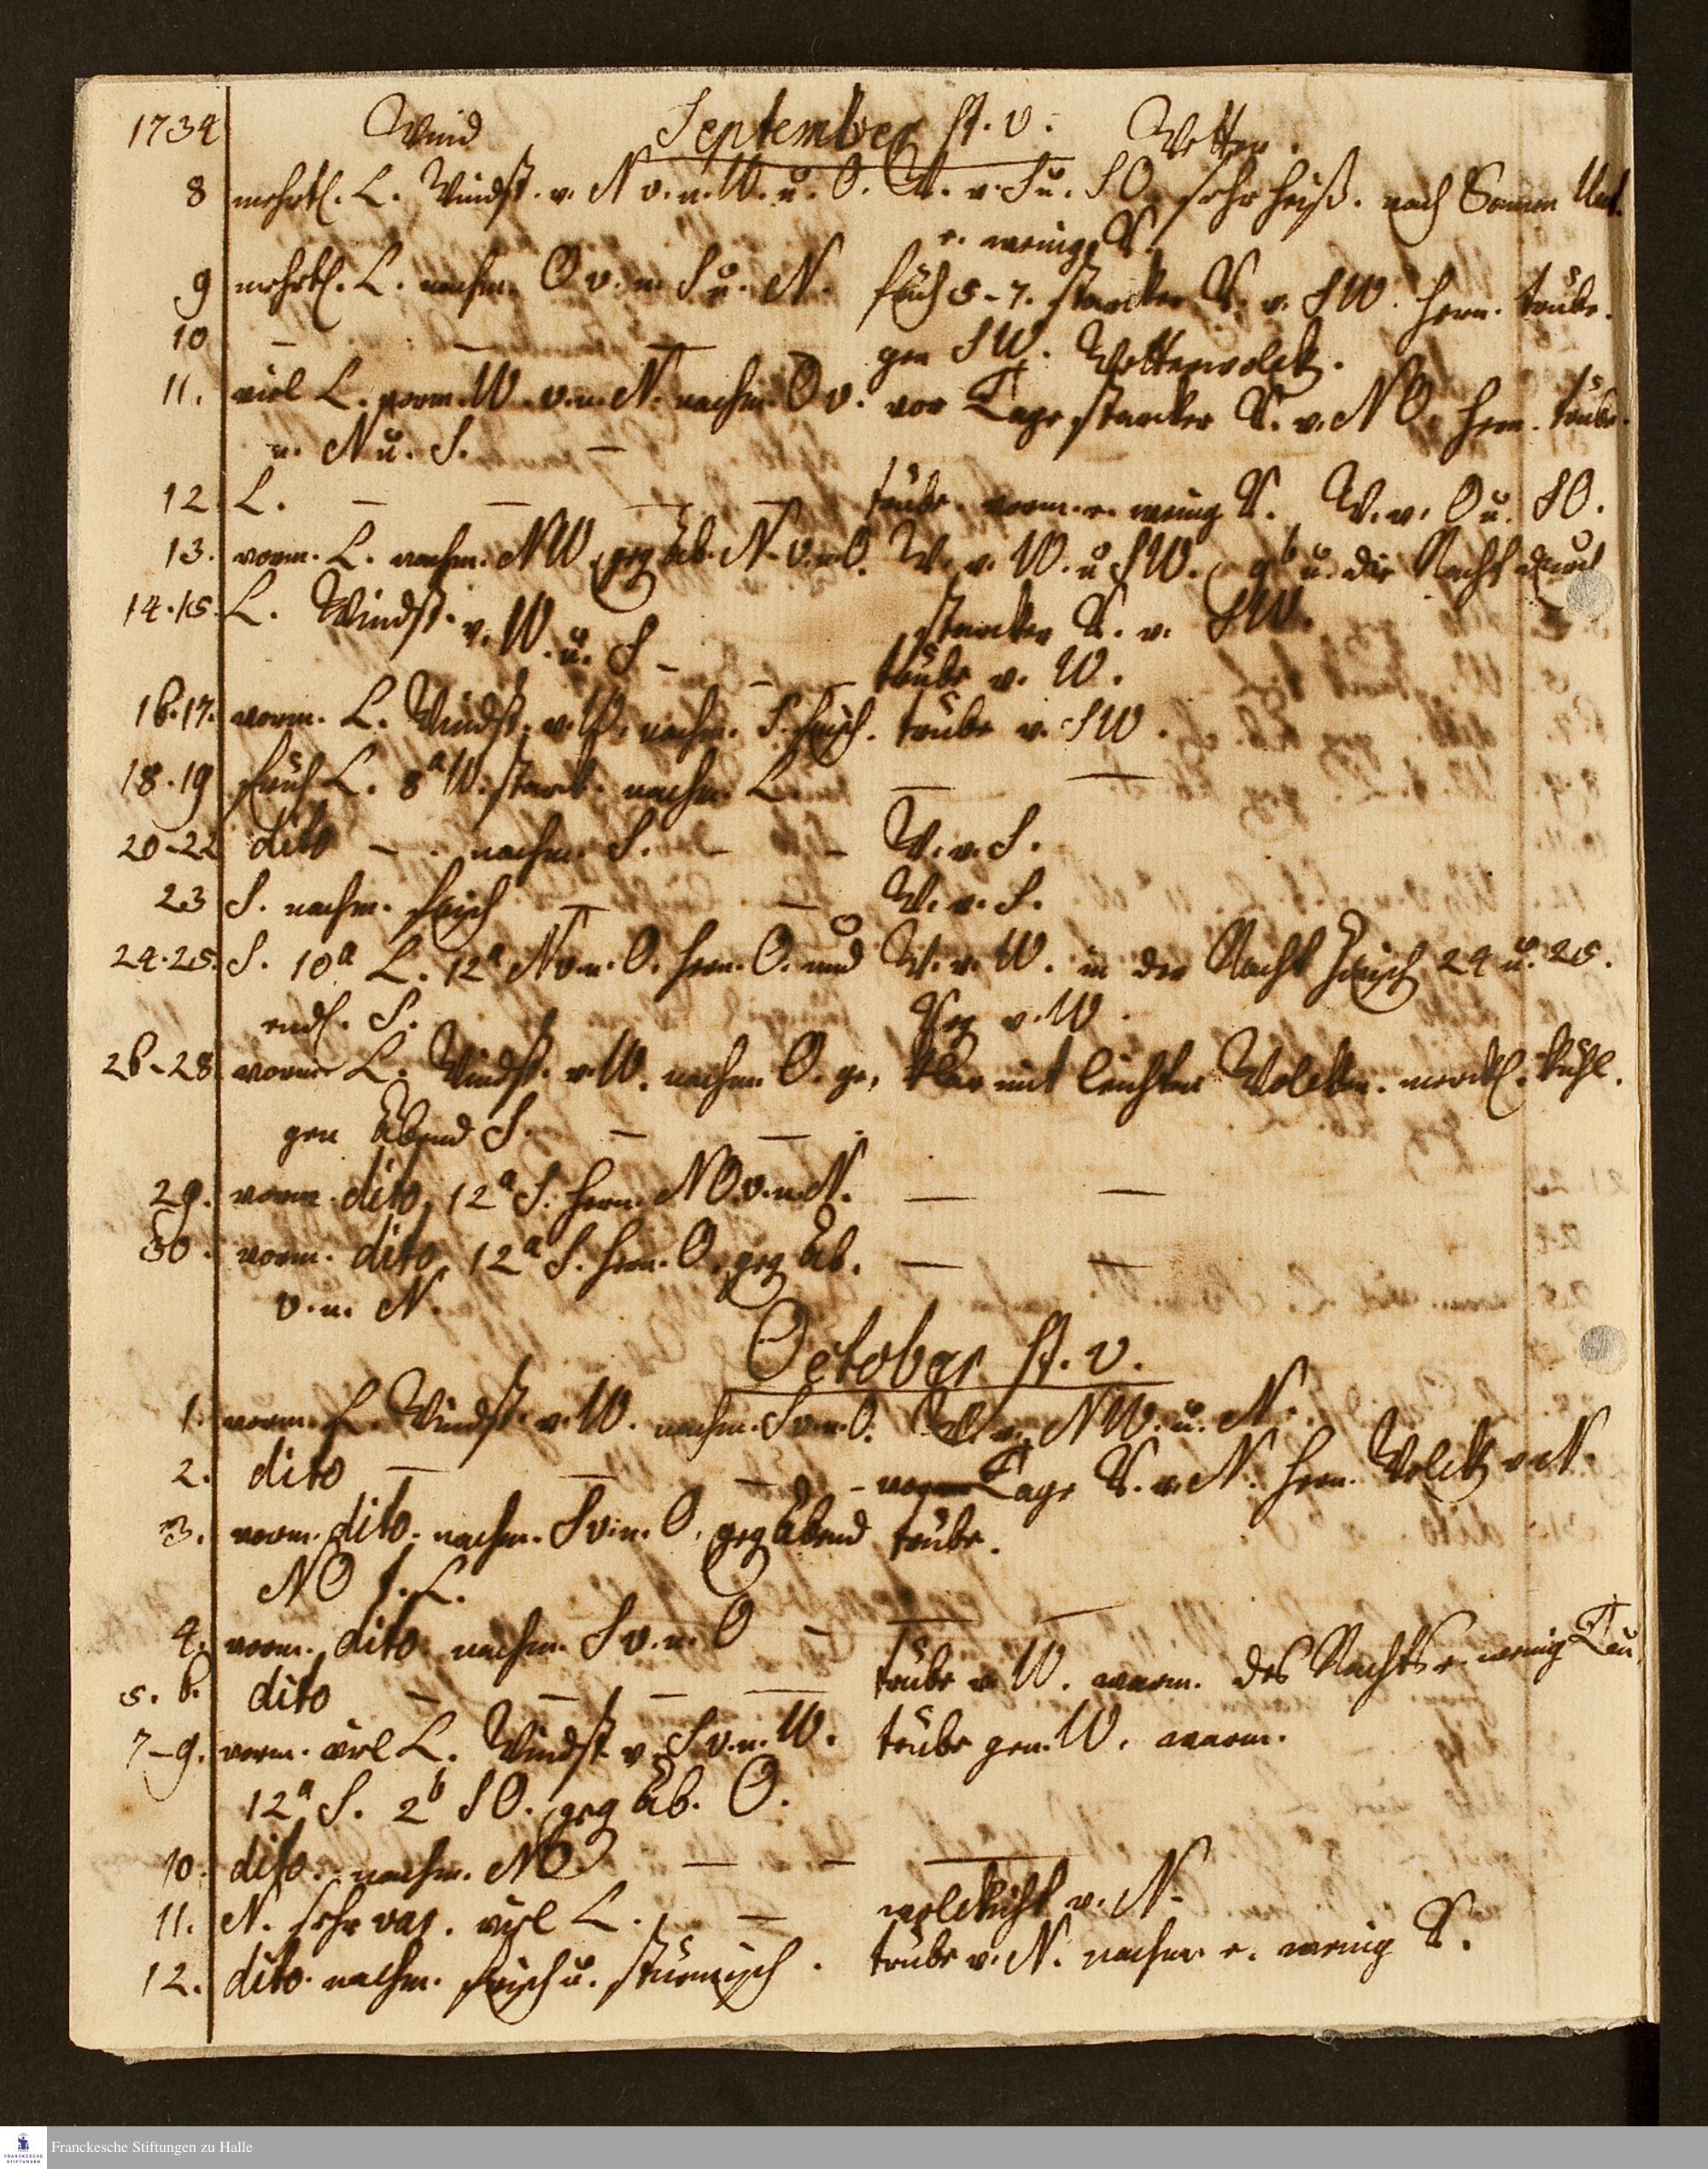 1734 Wind September st. v. Wetter.
8 mehrtl. L. Windst. v. N v. n. W. u. O. W. v. S u. SO. sehr heiß. nach Sonnen Unt.
e. wenig R.
9 mehrtl. L. nachm. O v. n. S u. N. früh 5-7. starcker R. v. SW. hern. trübe.
10 — — — — gen SW. Wetterwolck.
11. viel L. vorm. W. v. n. N. nachm. O v. vor Tage starcker R. v. NO. hern. trübe.
n. N u. S. —
12. L. — — — — trübe. vorm. e. wenig R. W. v. O u. SO.
13. vorm. L. nachm. NW. geg Ab. N. v. n. O. W. v. W. u SW. 9b u. die Nacht durch
14.15. L. Windst. v. W. u. S — starcker R. v. SW.
— — trübe v. W.
16.17. vorm. L. Windst. v. W. nachm. S. frisch. trübe v. SW.
18.19 früh L. 8a W. starck. nachm. L. — —
20-22 dito — . nachm. S. — — W. v. S.
23 S. nachm. frisch — — W. v. S.
24.25. S. 10a L. 12a N v. n. O. hern. O. und W. v. W. in der Nacht zwisch 24 u. 25.
endl. S. Reg v. W.
26-28 vorm L. Windst. v. W. nachm. O. ge, klar mit leichten Wolcken. merckl. kühl.
gen Abend S. — —
29. vorm. dito, 12a S. hern. NO. v. n. N. — —
30. vorm. dito, 12a S. hern. O. geg Ab. — —
v. n. N.
October st. v.
1. vorm. L. Windst. v. W. nachm. S v. n. O. W. v. NW. u. N.
2. dito — — — - vor Tage R. v. N. hern. Wolck v N.
3. vorm. dito. nachm. S v. n. O. geg Abend trübe.
NO f. L.
4. vorm. dito. nachm. S v. n. O — — —
5. 6. dito — — — — trübe v. W. warm. des Nachts e. wenig Tau.
7-9. vorm. viel L. Windst v. S v. n. W. trübe gen. W. warm.
12a S. 2b SO. geg Ab. O.
10. dito. nachm. NO. — — —
11. N. sehr var. viel L. — wolckicht v. N.
12. dito. nachm. frisch u. stürmisch. trübe v. N. nachm e. wenig R.
Franckesche Stiftungen zu Halle
FRANCKESCHE
STIFTUNGEN